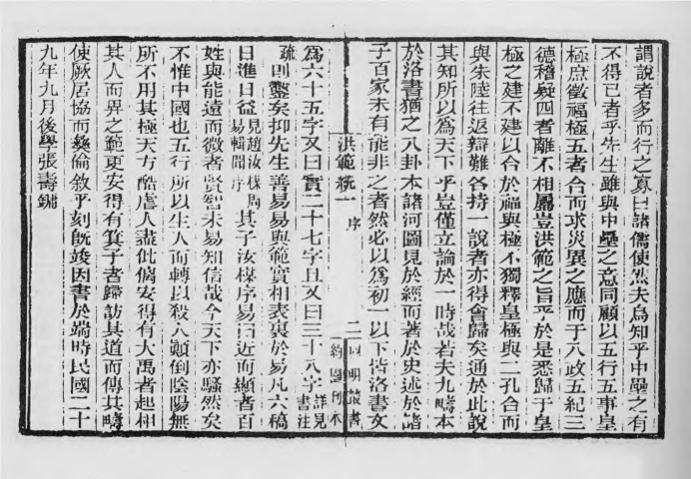 謂說者多而行之寡曰諸儒使然夫烏知乎中壘之有
不得已者乎先生雖與中壘之意同顧以五行五事皇
極庶徵福極五者合而求災異之應而于八政五紀三
德稽疑四者離不相屬豈洪範之旨乎於是悉歸于皇
極之建不建以合於福與極不獨釋皇極與二孔合而
與朱陸往返辯難各持一說者亦得會歸矣通於此說
其知所以為天下乎豈僅立論於一時哉若夫九疇本
於洛書猶之八卦本諸河圖見於經而著於史述於諸
子百家未有能非之者然必以為初一以下皆洛書文
洪範統一 序 二 四明叢書 約園刊本
為六十五字又曰實二十七字且又曰三十八字詳見書注
疏則鑿矣抑先生善易易與範實相表裏於易凡六稿
日進日益見趙汝楳周易輯聞序其子汝楳序易曰近而顯者百
姓與能遠而微者賢智未易知信哉今天下亦騷然矣
不惟中國也五行所以生人而轉以殺人顛倒陰陽無
所不用其極天方酷虐人盡仳㒧安得有大禹者起相
其人而畀之範更安得有箕子者歸訪其道而傳其疇
使厥居協而彝倫敘乎刻既竣因書於端時民國二十
九年九月後學張壽鏞